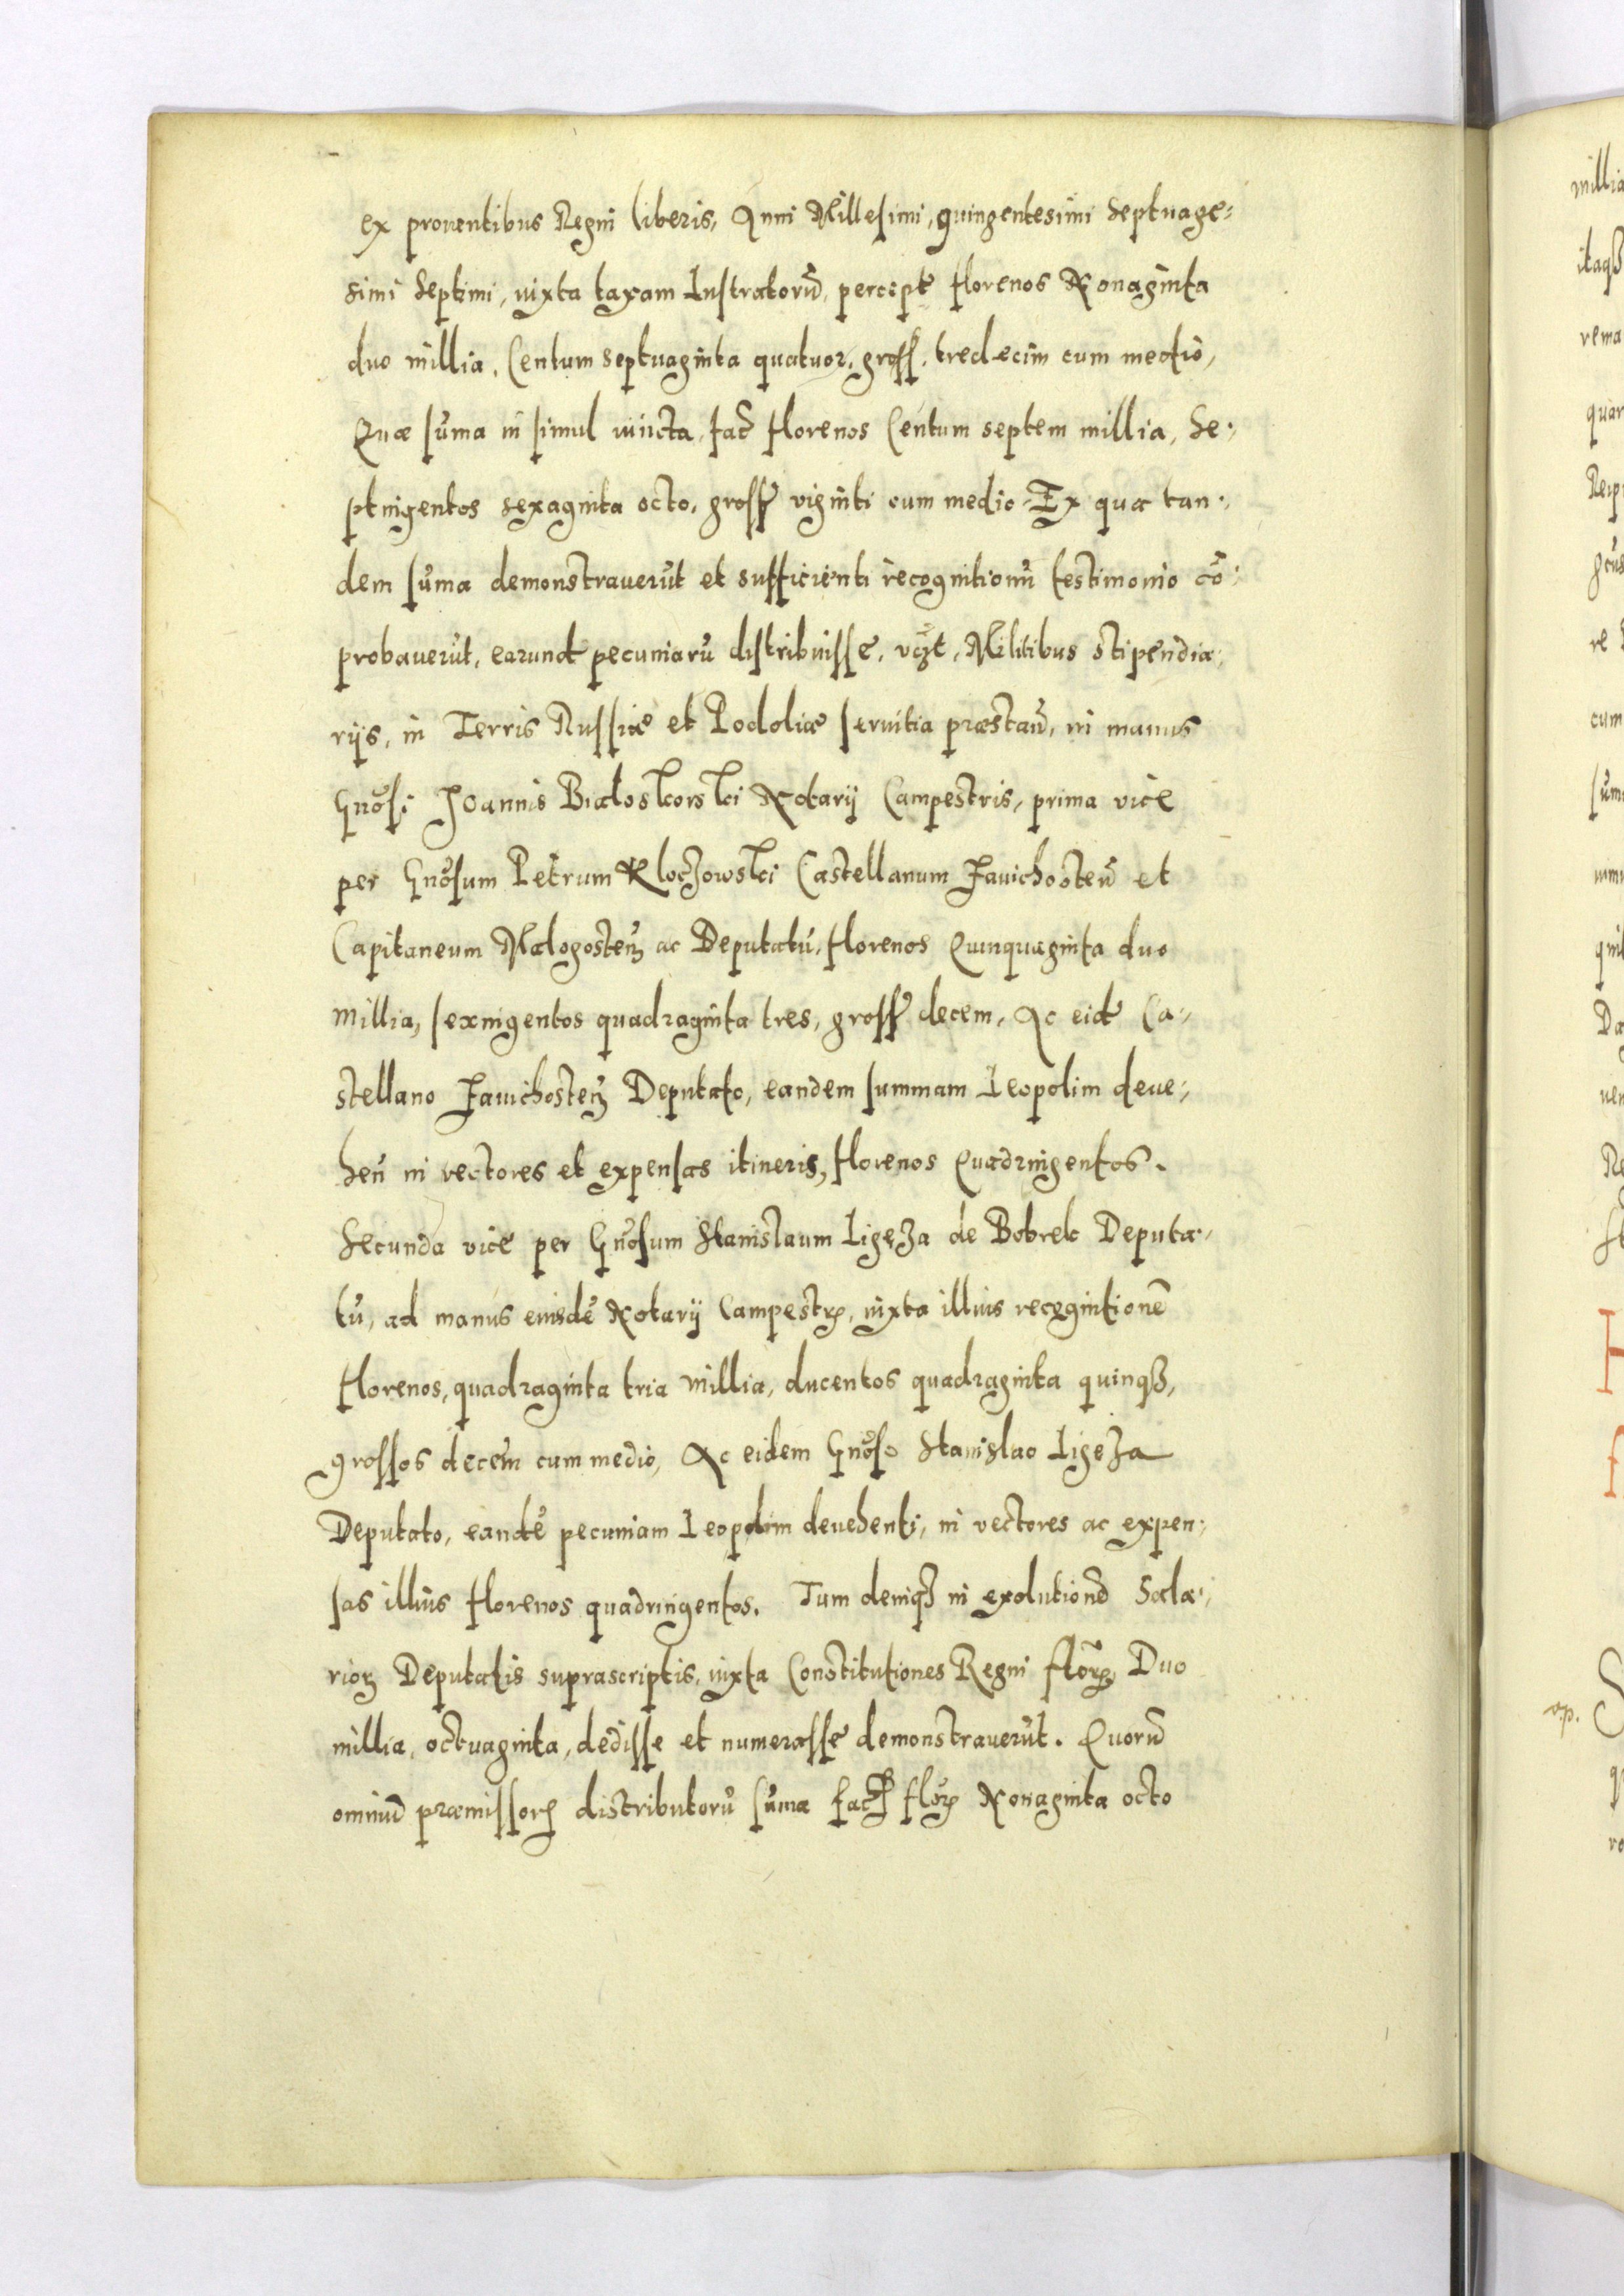 ex prouentibus Regni liberis, Anni Millesimi, quingentesimi Septuage-
simi Septimi, iuxta taxam Lustratorũ, percept florenos Nonaginta
duo millia, Centum septuaginta quatuor, gross. tredecim cum medio,
Quæ sũma in simul iuncta, fac̃ florenos Centum septem millia, Se-
ptingentos sexaginta octo, gross viginti cum medio. Ex qua tan-
dem sũma demonstrauerũt et sufficienti recognitionũ testimonio cõ-
probauerũt, earund pecuniarũ distribuisse, vꝫt, Militibus stipendia-
rijs, in Terris Russiæ et Podoliæ seruitia præstan̄, in manus
Gnõsi Joannis Białoskorski Notarij Campestris, prima vice
per Gnõsum Petrum Kłoczowski Castellanum Zauichosten̄ et
Capitaneum Małogosten̄ ac Deputatũ, florenos Quinquaginta duo
millia, sexingentos quadraginta tres, gross decem, Ac eid Ca-
stellano Zauichosten̄ Deputato, eandem summam Leopolim deue-
hen̄ in vectores et expensas itineris, florenos Quadringentos.
Secunda vice per Gnõsum Stanislaum Ligęza de Bobrek Deputa-
tũ, ad manus eiusdẽ Notarij Campestrꝭ, iuxta illius recognitionẽ
florenos, quadraginta tria millia, ducentos quadraginta quinqꝫ,
grossos decem cum medio, Ac eidem Gnõso Stanislao Ligęza
Deputato, eandẽ pecuniam Leopolim deuehenti, in vectores ac expen-
sas illius florenos quadringentos. Tum deniqꝫ in exolutionẽ Sala-
rioꝝ Deputatis suprascriptis, iuxta Constitutiones Regni florꝭ Duo
millia, octuaginta, dedisse et numerasse demonstrauerũt. Quorũ
omniũ præmissorꝭ distributorũ sũma facꝭ florꝭ Nonaginta octo